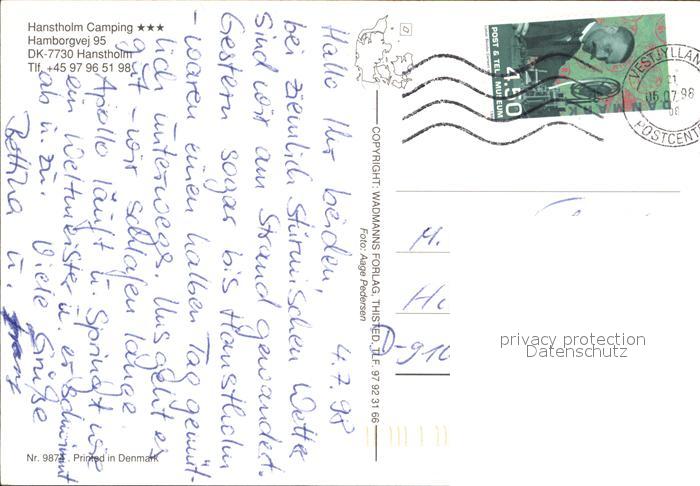 Hanstholm Camping ★★★
Hamborgvej 95
DK-7730 Hanstholm
Tlf. +45 97 96 51 98
4.7.98
Hallo Ihr beiden,
bei ziemlich stürmischen Wetter
sind wir am Strand gewandert.
Gestern sogar bis Hanstholm
- waren einen halben Tag gemüt-
lich unterwegs. Uns geht es
gut - wir schlafen lange
Apollo läuft u. springt wie
ein Weltmeister u. er schwimmt
ab u. zu. Viele Grüße
Bettina u.
Nr. 987 . Printed in Denmark
COPYRIGHT: WADMANNS FORLAG, THISTED, TLF. 97 92 31 66
Foto: Aage Pedersen
POST & TELE MUSEUM
4.50
DANMARK
VESTJYLLAN
05.07.98
POSTCENT
H.
D-910
privacy protection
Datenschutz